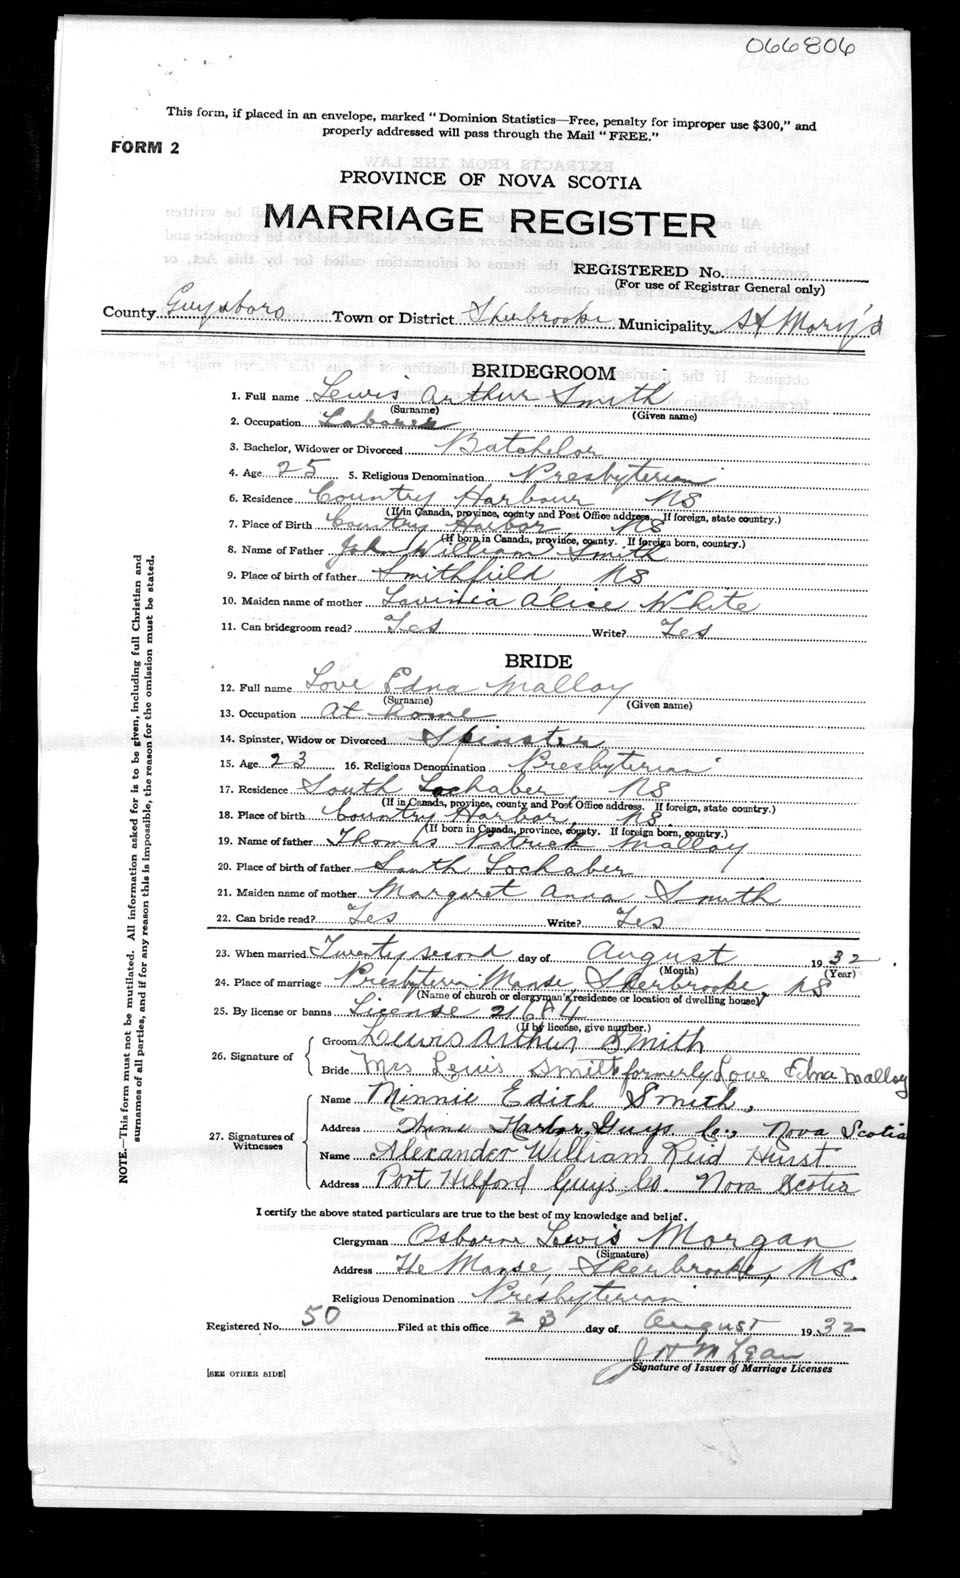 066806
This form, if placed in an envelope, marked "Dominion Statistics—Free, penalty for improper use $300," and
properly addressed will pass through the Mail "FREE."
FORM 2
PROVINCE OF NOVA SCOTIA
MARRIAGE REGISTER
REGISTERED No.
(For use of Registrar General only)
County Guysboro Town or District Sherbrooke Municipality St Mary's
BRIDEGROOM
1. Full name Lewis Arthur Smith
(Surname) (Given name)
2. Occupation Laborer
3. Bachelor, Widower or Divorced Batchelor
4. Age 25 5. Religious Denomination Presbyterian
6. Residence Country Harbour NS
(If in Canada, province, county and Post Office address. If foreign, state country.)
7. Place of Birth Country Harbor NS
(If born in Canada, province, county. If foreign born, country.)
8. Name of Father John William Smith
9. Place of birth of father Smithfield, NS
10. Maiden name of mother Lavinia Alice White
11. Can bridegroom read? Yes Write? Yes
BRIDE
12. Full name Love Edna Malloy
(Surname) (Given name)
13. Occupation at home
14. Spinster, Widow or Divorced Spinster
15. Age 23 16. Religious Denomination Presbyterian
17. Residence South Lochaber, NS
(If in Canada, province, county and Post Office address. If foreign, state country.)
18. Place of birth Country Harbor, NS.
(If born in Canada, province, county. If foreign born, country.)
19. Name of father Thomas Patrick Malloy
20. Place of birth of father South Lochaber
21. Maiden name of mother Margaret Anna Smith
22. Can bride read? Yes Write? Yes
23. When married Twenty second day of August 1932
(Month) (Year)
24. Place of marriage Presbyterian Manse, Sherbrooke, NS
(Name of church or clergyman's residence or location of dwelling house)
25. By license or banns License 21684
(If by license, give number.)
26. Signature of Groom Lewis Arthur Smith
Bride Mrs Lewis Smith formerly Love Edna Malloy
27. Signatures of Witnesses
Name Minnie Edith Smith,
Address Wine Harbor Guys Co., Nova Scotia
Name Alexander William Reid Hurst
Address Port Hilford Guys Co. Nova Scotia
I certify the above stated particulars are true to the best of my knowledge and belief.
Clergyman Osborne Lewis Morgan
(Signature)
Address The Manse, Sherbrooke, NS.
Religious Denomination Presbyterian
Registered No. 50 Filed at this office 23 day of August 1932
J H McLean
Signature of Issuer of Marriage Licenses
[SEE OTHER SIDE]
NOTE.—This form must not be mutilated. All information asked for is to be given, including full Christian and
surnames of all parties, and if for any reason this is impossible, the reason for the omission must be stated.